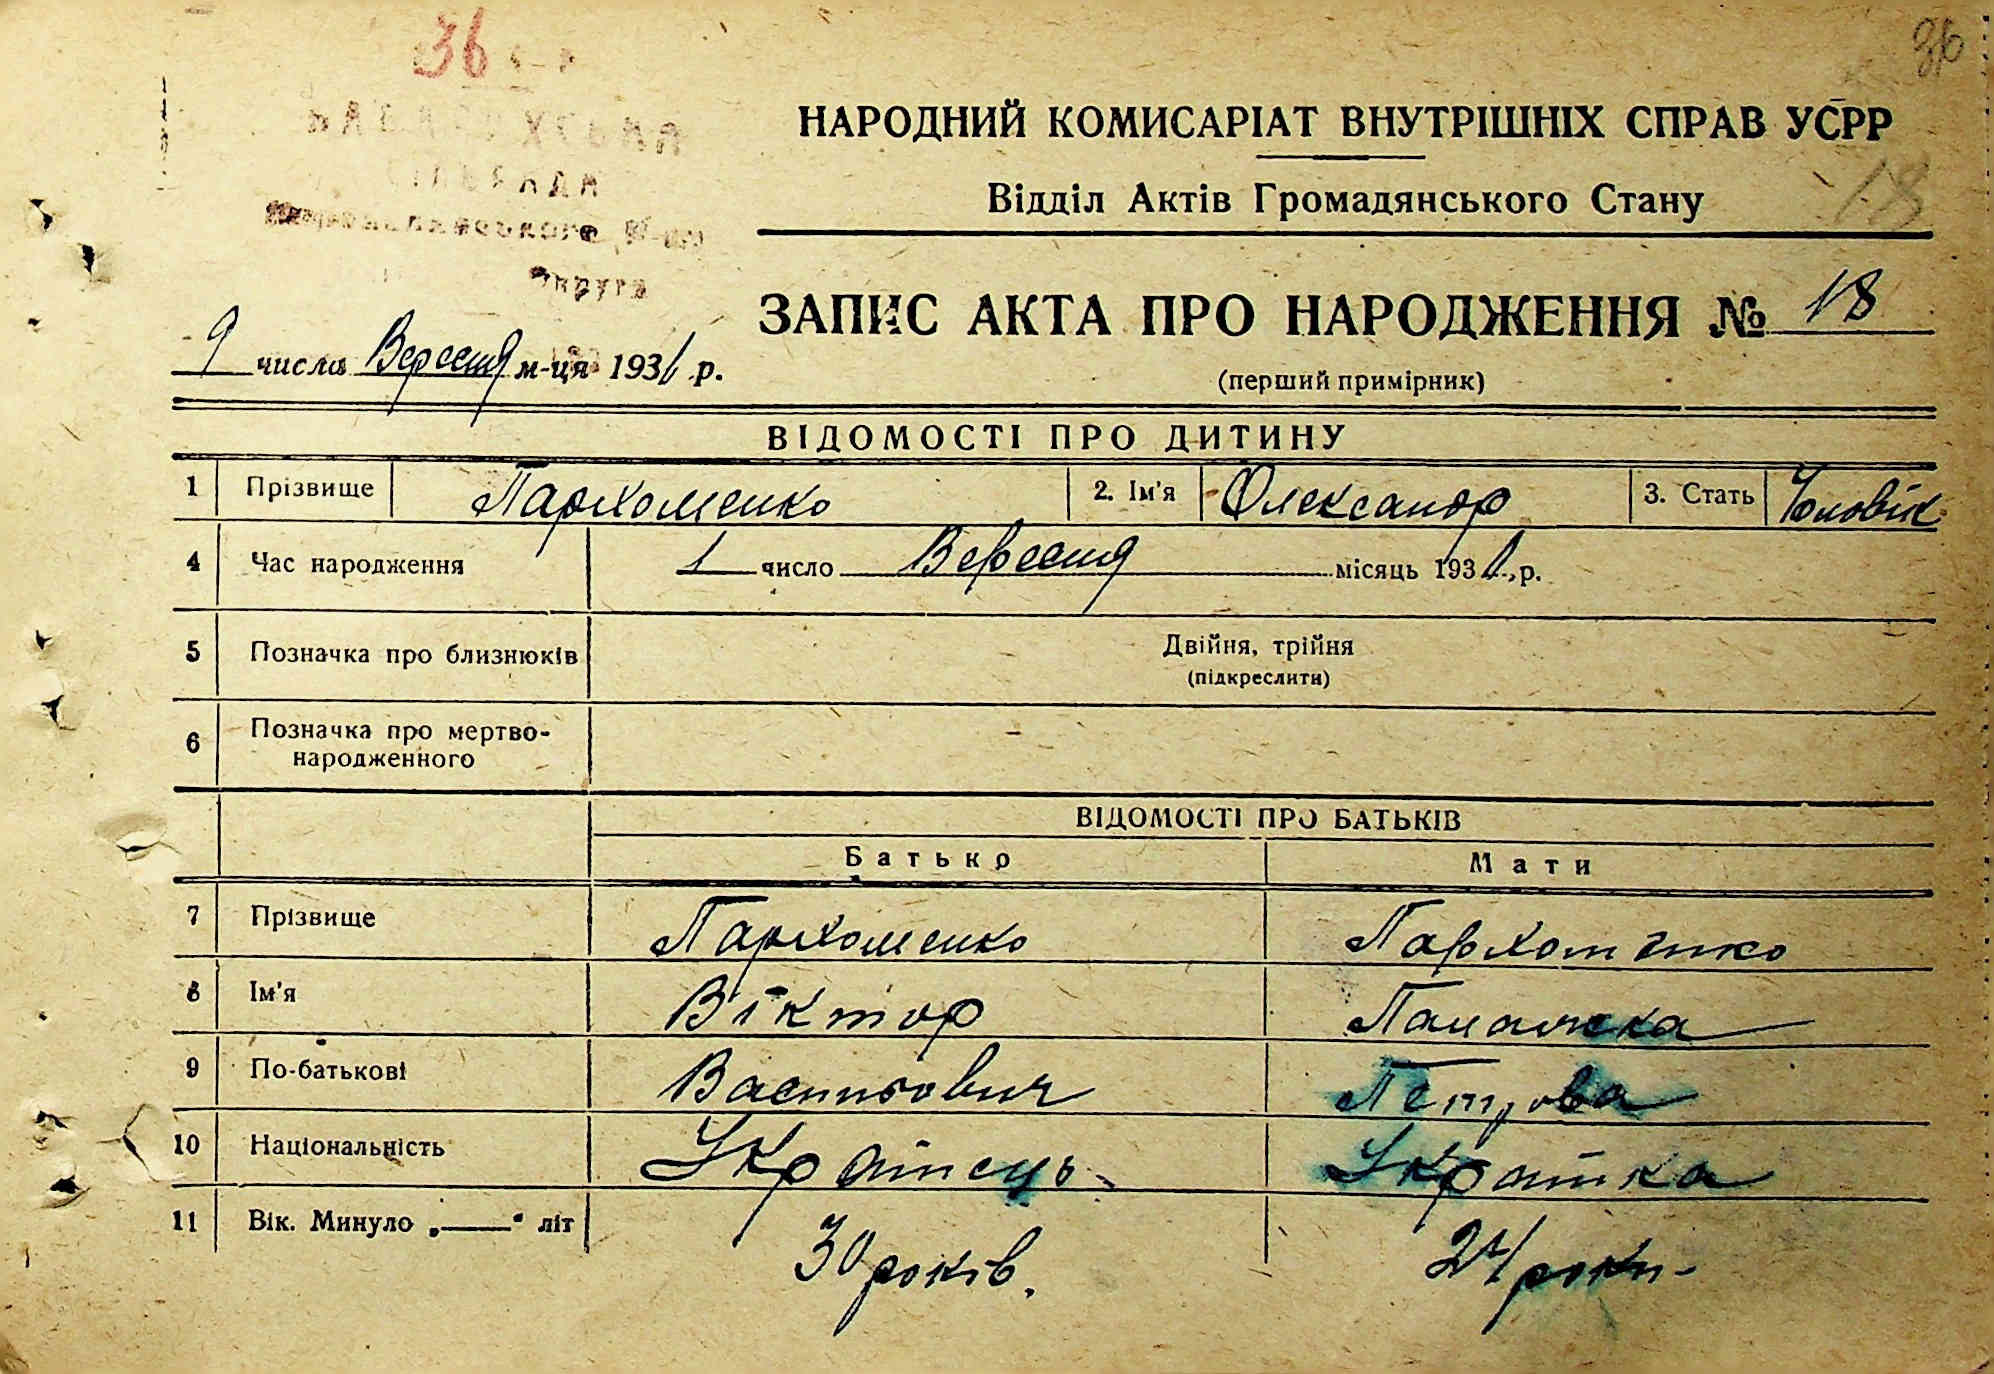 36
36
НАРОДНИЙ КОМИСАРІАТ ВНУТРІШНІХ СПРАВ УСРР
Відділ Актів Громадянського Стану
18
округа
ЗАПИС АКТА ПРО НАРОДЖЕННЯ № 18
9 числа Вересня м-ця 1931 р.
(перший примірник)
ВІДОМОСТІ ПРО ДИТИНУ
1 Прізвище Пархоменко 2. Ім'я Олександр 3. Стать Чоловік
4 Час народження 1 число Вересня місяць 1931 р.
5 Позначка про близнюків Двійня, трійня
(підкреслити)
6 Позначка про мертво-
народженного
ВІДОМОСТІ ПРО БАТЬКІВ
Батько Мати
7 Прізвище Пархоменко Пархоменко
8 Ім'я Віктор
9 По-батькові Васильович Петрова
10 Національність Українець Українка
11 Вік. Минуло „—" літ 30 років. 24 роки